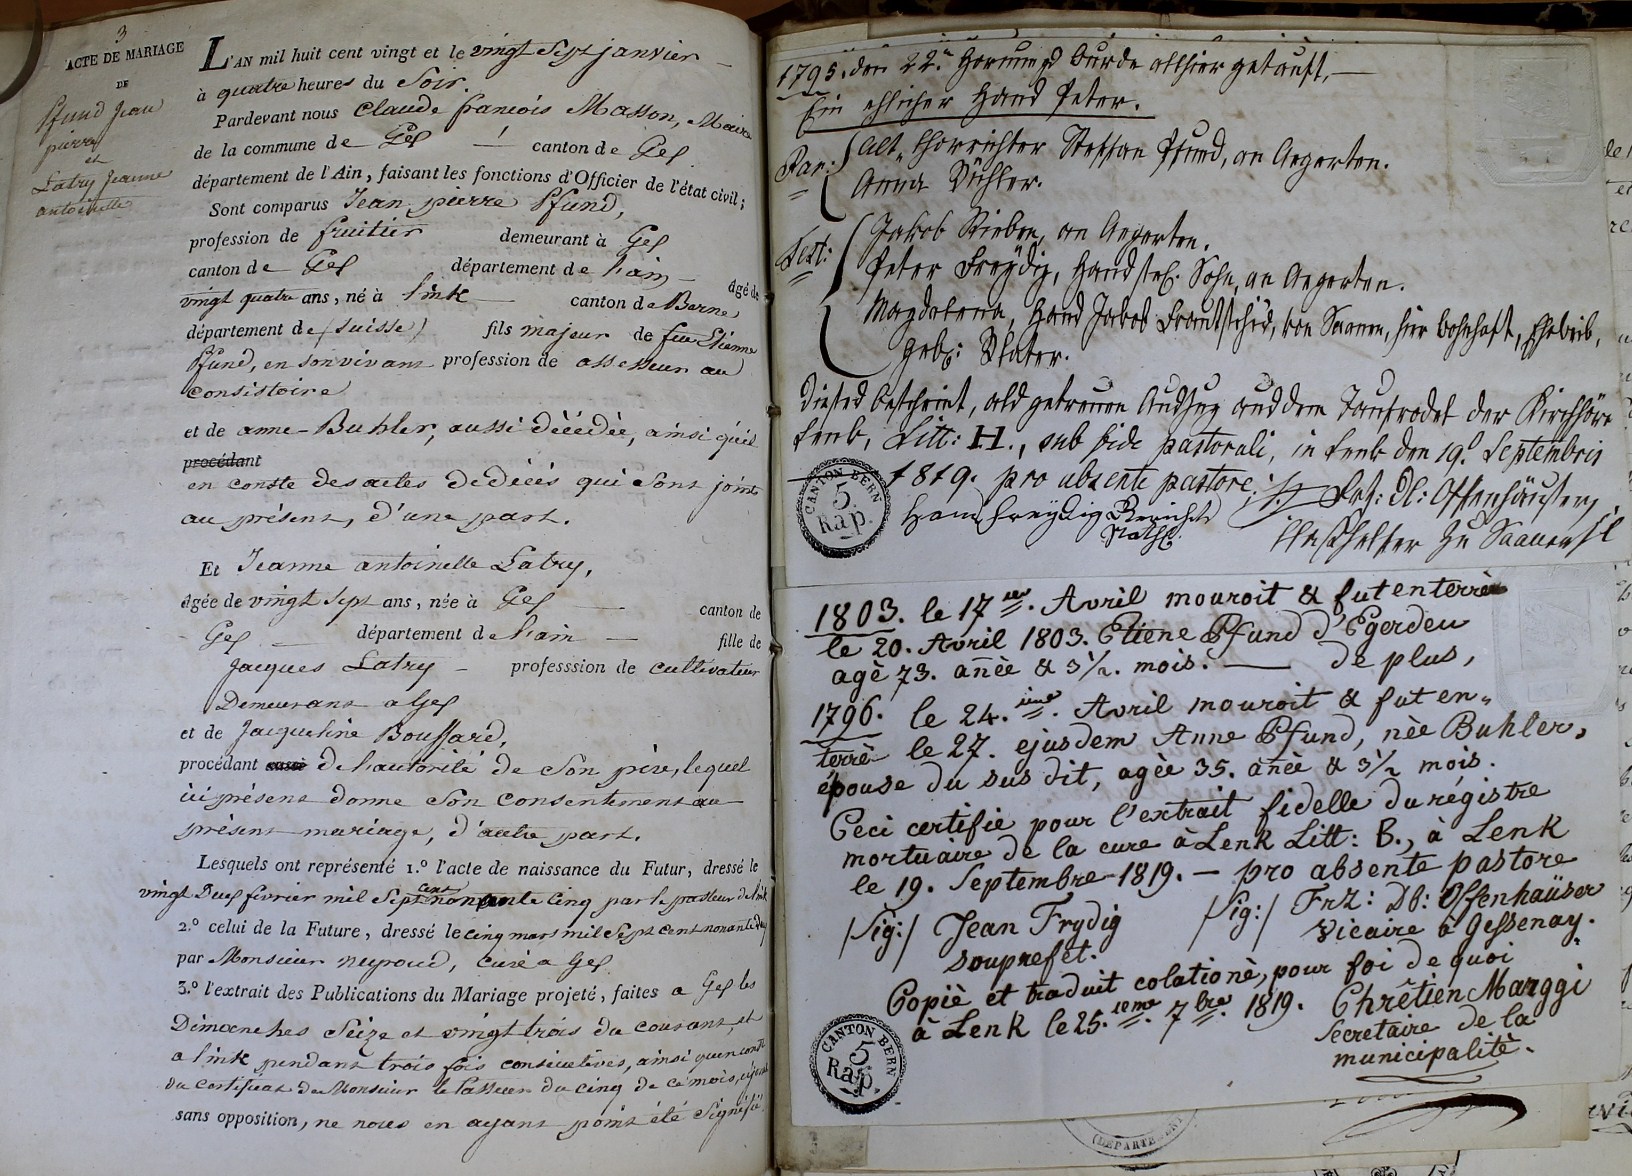 3
ACTE DE MARIAGE
DE
Pfund Jean
pierre
et
Latry Jeanne
antoinette
L'AN mil huit cent vingt et le vingt Sept janvier
à quatre heures du Soir.
Pardevant nous Claude francois Masson, Maire
de la commune de Gex canton de Gex
département de l'Ain, faisant les fonctions d'Officier de l'état civil;
Sont comparus Jean pierre Pfund,
profession de fruitier demeurant à Gex
canton de Gex département de l'ain âgé de
vingt quatre ans, né à Link canton de Berne
département de (Suisse) fils majeur de feu Etienne
Pfund, en son vivant profession de assesseur au
consistoire
et de anne Buhler, aussi décédée, ainsi qu'il
procédant
en conste des actes de décés qui Sont joints
au présent, d'une part.
Et Jeanne antoinette Latry,
âgée de vingt Sept ans, née à Gex canton de
Gex département de l'ain fille de
Jacques Latry professsion de cultivateur
Demeurant a Gex
et de Jacqueline Bouffard,
procédant aussi de l'autorité de Son père, lequel
ici présent donne Son Consentement au
présent mariage, d'autre part.
Lesquels ont représenté 1.° l'acte de naissance du Futur, dressé le
vingt Deux fevrier mil Sept cent nonante Cinq par le pasteur de Link
2.° celui de la Future, dressé le cinq mars mil Sept cent nonante deux
par Monsieur neyroud, curé a Gex
3.° l'extrait des Publications du Mariage projeté, faites a Gex les
Dimanches Seize et vingt trois du courant, et
a Link pendant trois fois consécutives, ainsi qu'en conste
du certificat de Monsieur le Pasteur du cinq de ce mois,
sans opposition, ne nous en ayant point été Signifié
1795. den 22.n Hornung wurde allhier getauft,
Ein ehlicher Hans Peter.
Par: Alt Chorrichter Steffan Pfund, an Aegerten.
Anna Bühler.
Test: Jakob Rieben, an Aegerten.
Peter Freydig, Hans sel. Sohn, an Aegerten.
Magdalena, Hans Jakob Frautschis, von Saanen, hier wohnhaft, Eheweib,
geb:
Dieses bescheint, als getreuen Auszug aus dem Taufrodel der Kirchhöre
Lenk, Litt: H., sub fide pastorali, in Lenk den 19.t Septembris
1819. pro absente pastore. Frz: Db: Offenhäuser,
Hans Freydig
zu Saanen
CANTON BERN
5
Rap.
1803. le 17.me Avril mouroit & fut enterrè
le 20. Avril 1803. Etiene Pfund d'Egerden
agè 73. anèe & 3 1/2. mois. — de plus,
1796. le 24.ime. Avril mouroit & fut en„
terrè le 27. ejusdem Anne Pfund, nèe Buhler,
épouse du sus dit, agèe 35. anèe & 3 1/2 mois.
Ceci certifie pour l'extrait fidelle du régistre
mortuaire de la cure à Lenk Litt: B., à Lenk
le 19. Septembre 1819. — pro absente pastore
/Sig:/ Jean Frydig /Sig:/ Frz: Db: Offenhaüser
souprefet. vicaire à Gessenay.
Copiè et traduit colationè, pour foi de quoi
à Lenk le 25.ieme 7bre. 1819. Chrêtien Marggi
Secretaire de la
municipalitè.
CANTON BERN
5
Rap.
(DEPARTE